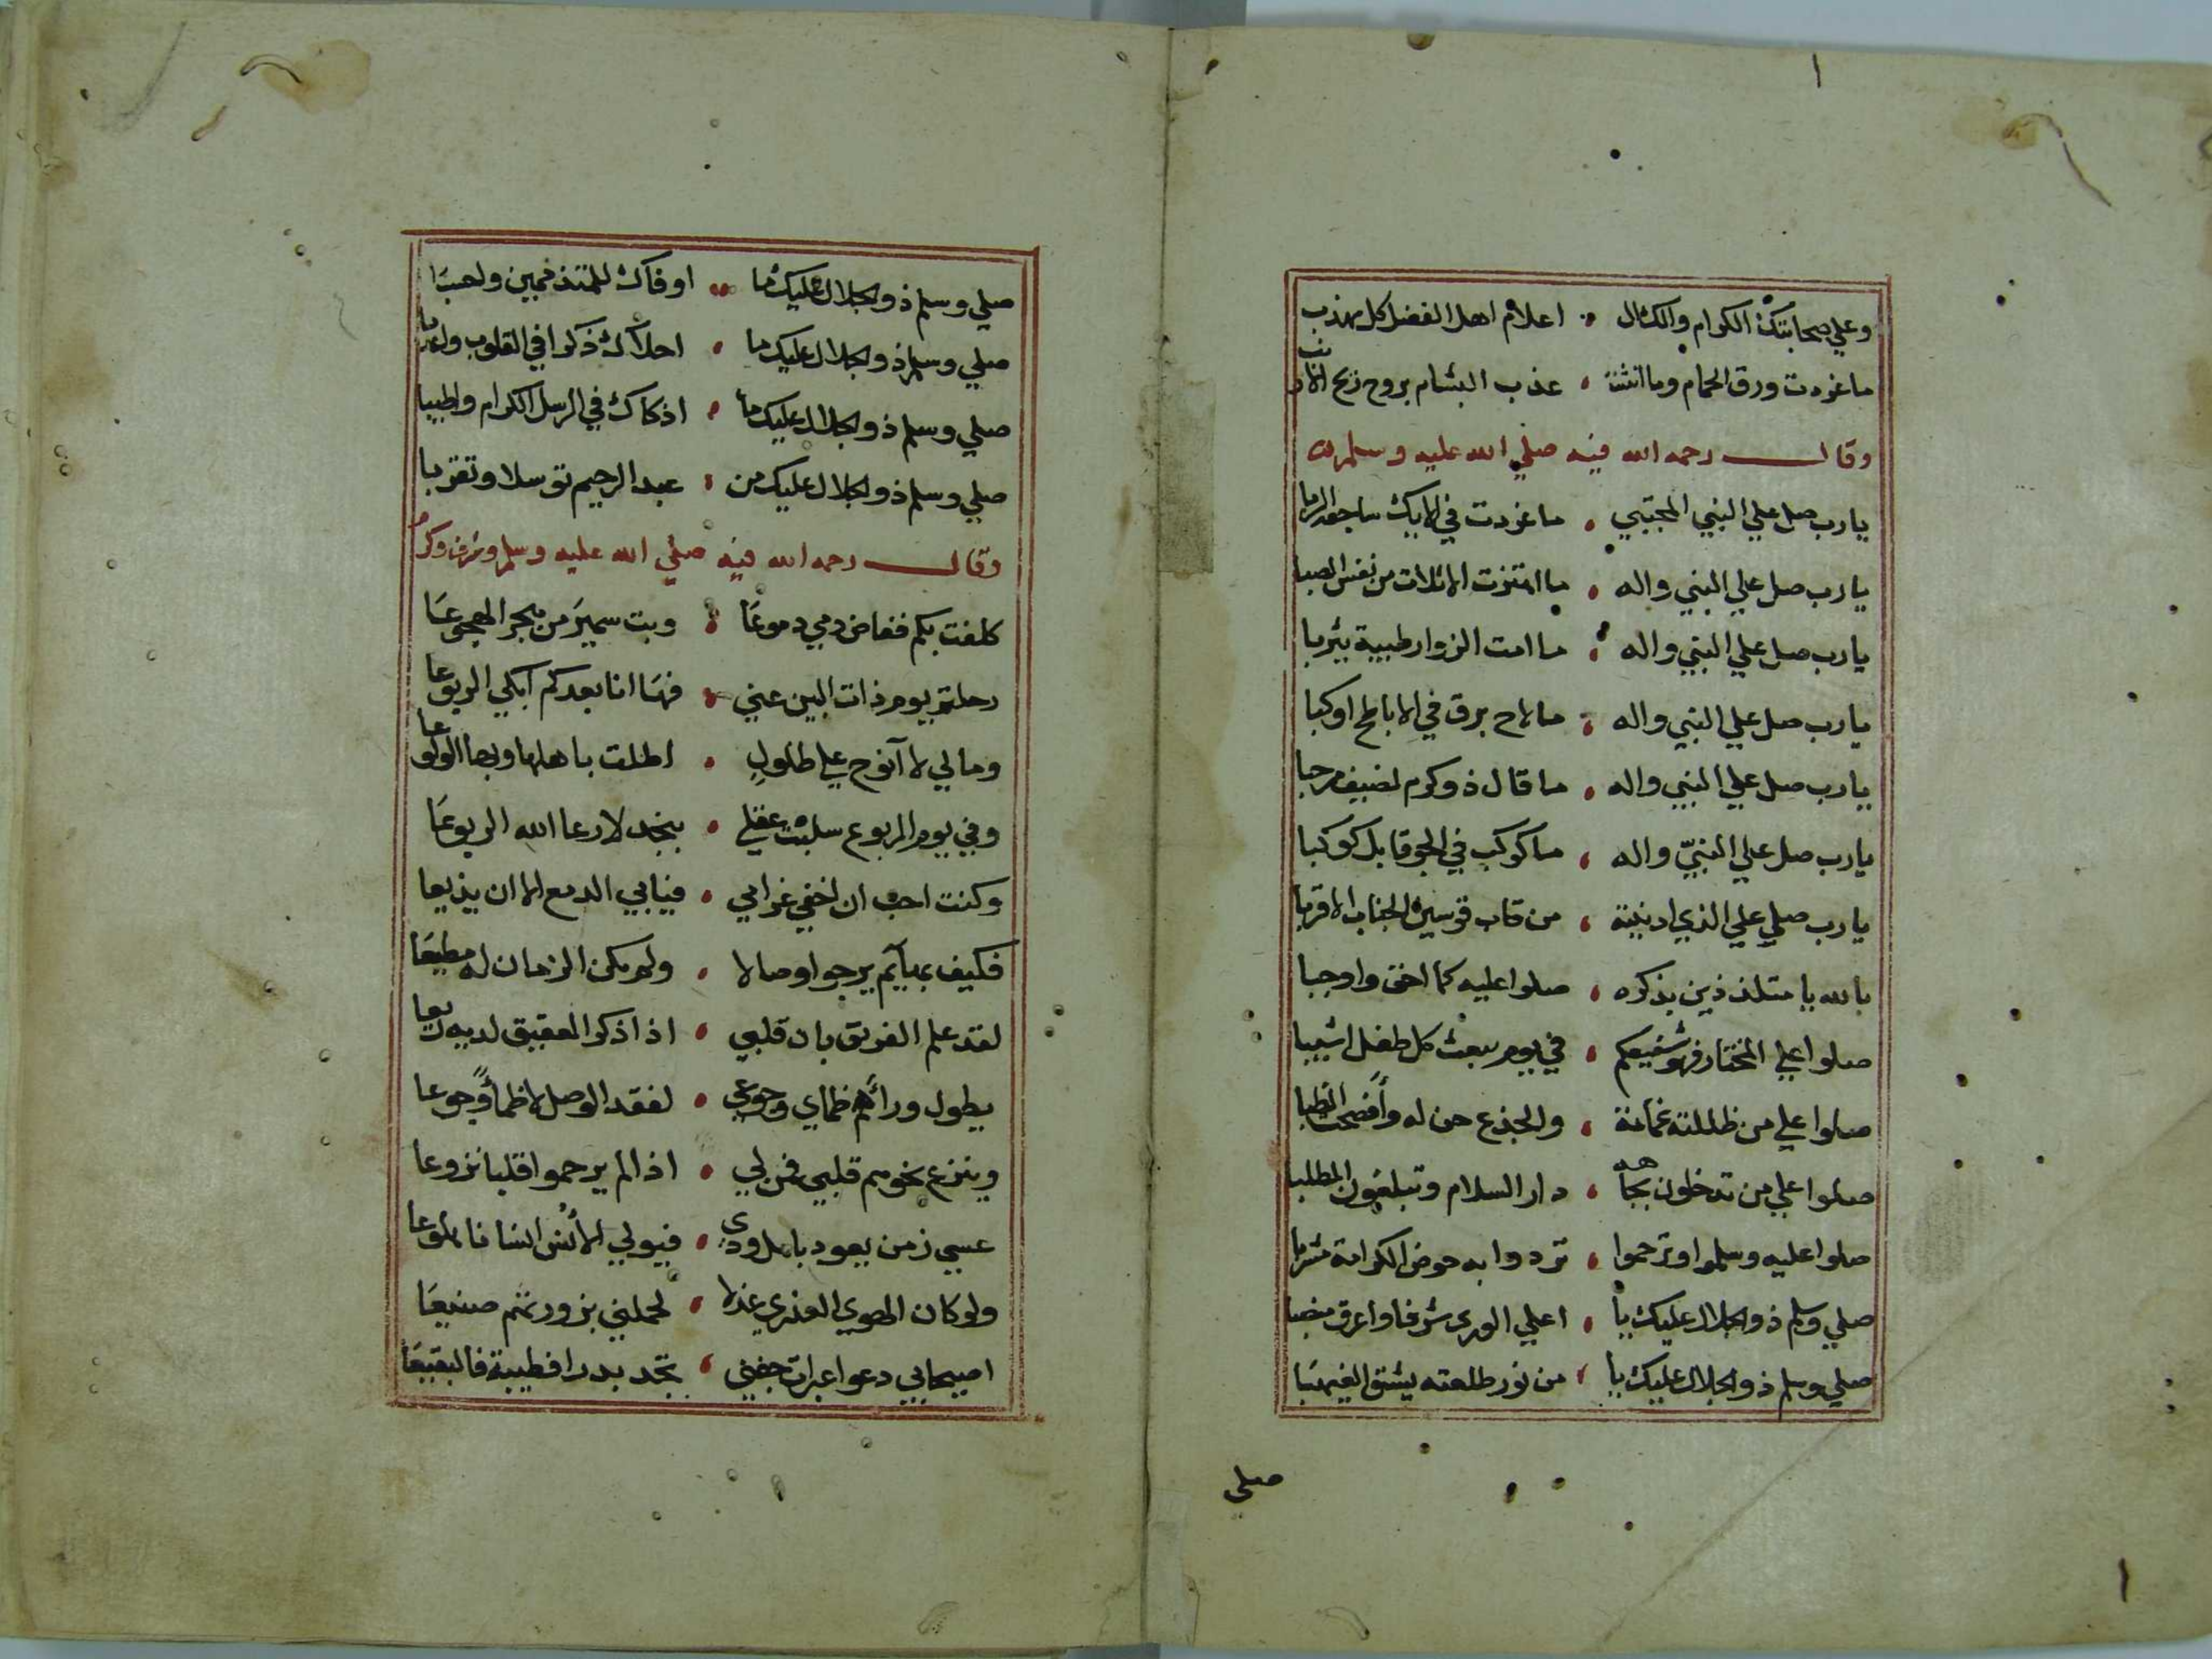 وعلي صحابتك الكرام والك ال اعلام اهل الفضل كل مهذب
ما غردت ورق الحمام وما انثنت عذب البشام بروح ريح
وقال رحمه الله فيه صلي الله عليه وسلم
يا رب صل علي النبي المجتبي ما غردت في الايك ساجعة الربا
يا رب صل علي النبي واله ما اهتزت الاثلات من نفس الصبا
يا رب صل علي النبي واله ما امت الزوار طيبة يثربا
يا رب صل علي النبي واله ما لاح برق في الاباطح او كبا
يا رب صل علي النبي واله ما قال ذو كرم لضيف مرحبا
يا رب صل علي النبيّ واله ما كوكب في الجو قابل كوكبا
يا رب صلي علي الذي ادنيته من قاب قوسين الجناب الاقربا
بالله يا متلذذين بذكره صلوا عليه كما احق واوجبا
صلوا علي المختار فهو شفيعكم في يوم يبعث كل طفل اشيبا
صلوا علي من ظللته غمامة والجذع حن له وأفصحت الظبا
صلوا علي من تدخلون بجاهه دار السلام وتبلغون المطلبا
صلوا عليه وسلموا وترحموا تردوا به حوض الكرامة مشربا
صلي وسلم ذو الجلال عليك يا اعلي الوري شرفا واعرق منصبا
صلي وسلم ذو الجلال عليك يا من نور طلعته يشق الغيهبَا
صلي
صلي وسلم ذو الجلال عليك ما اوفاك للمتذممين واحبَا
صلي وسلم ذو الجلال عليك ما احلاك ذكرا في القلوب واعذبا
صلي وسلم ذو الجلال عليك ما اذكاك في الرسل الكرام واطيبا
صلي وسلم ذو الجلال عليك من عبد الرحيم توسلا وتقربا
وقال رحمه الله فيه صلي الله عليه وسلم وشرف وكرم
كلفت بكم ففاض دمي دموعَا وبت سميرَ من هجر الهجوعَا
رحلتم يوم ذات البين عني فهَا انا بعدكم ابكي الربوعا
وما لي لا آنوح علي طلولٍ اطلت باهلها وبها الولوعا
وفي يوم الربوع سلبت عقلي بنجد لا رعا الله الربوعَا
وكنت احب ان اخفي غرامي فيابي الدمع الا ان يذيعا
فكيف بهآيم يرجوا وصالا ولم يكن الزمان له مطيعَا
لقد علم الفريق بان قلبي اذا ذكر العقيق لديه ريعا
يطول ورأهم ظماي وجوعي لفقد الوصل لا ظمأً وجوعا
وينزع نحوهم قلبي فمن لي اذا لم يرحموا قلبا نزوعا
عسي زمن يعود باهل ودي فيولي الأنس انسانا هلوعا
ولو كان الهوي العذري عذلا لحملني بزورتهم صنيعَا
اصيحابي دعوا عبرات جفني تجد بدرا فطيبة فالبقيعَا